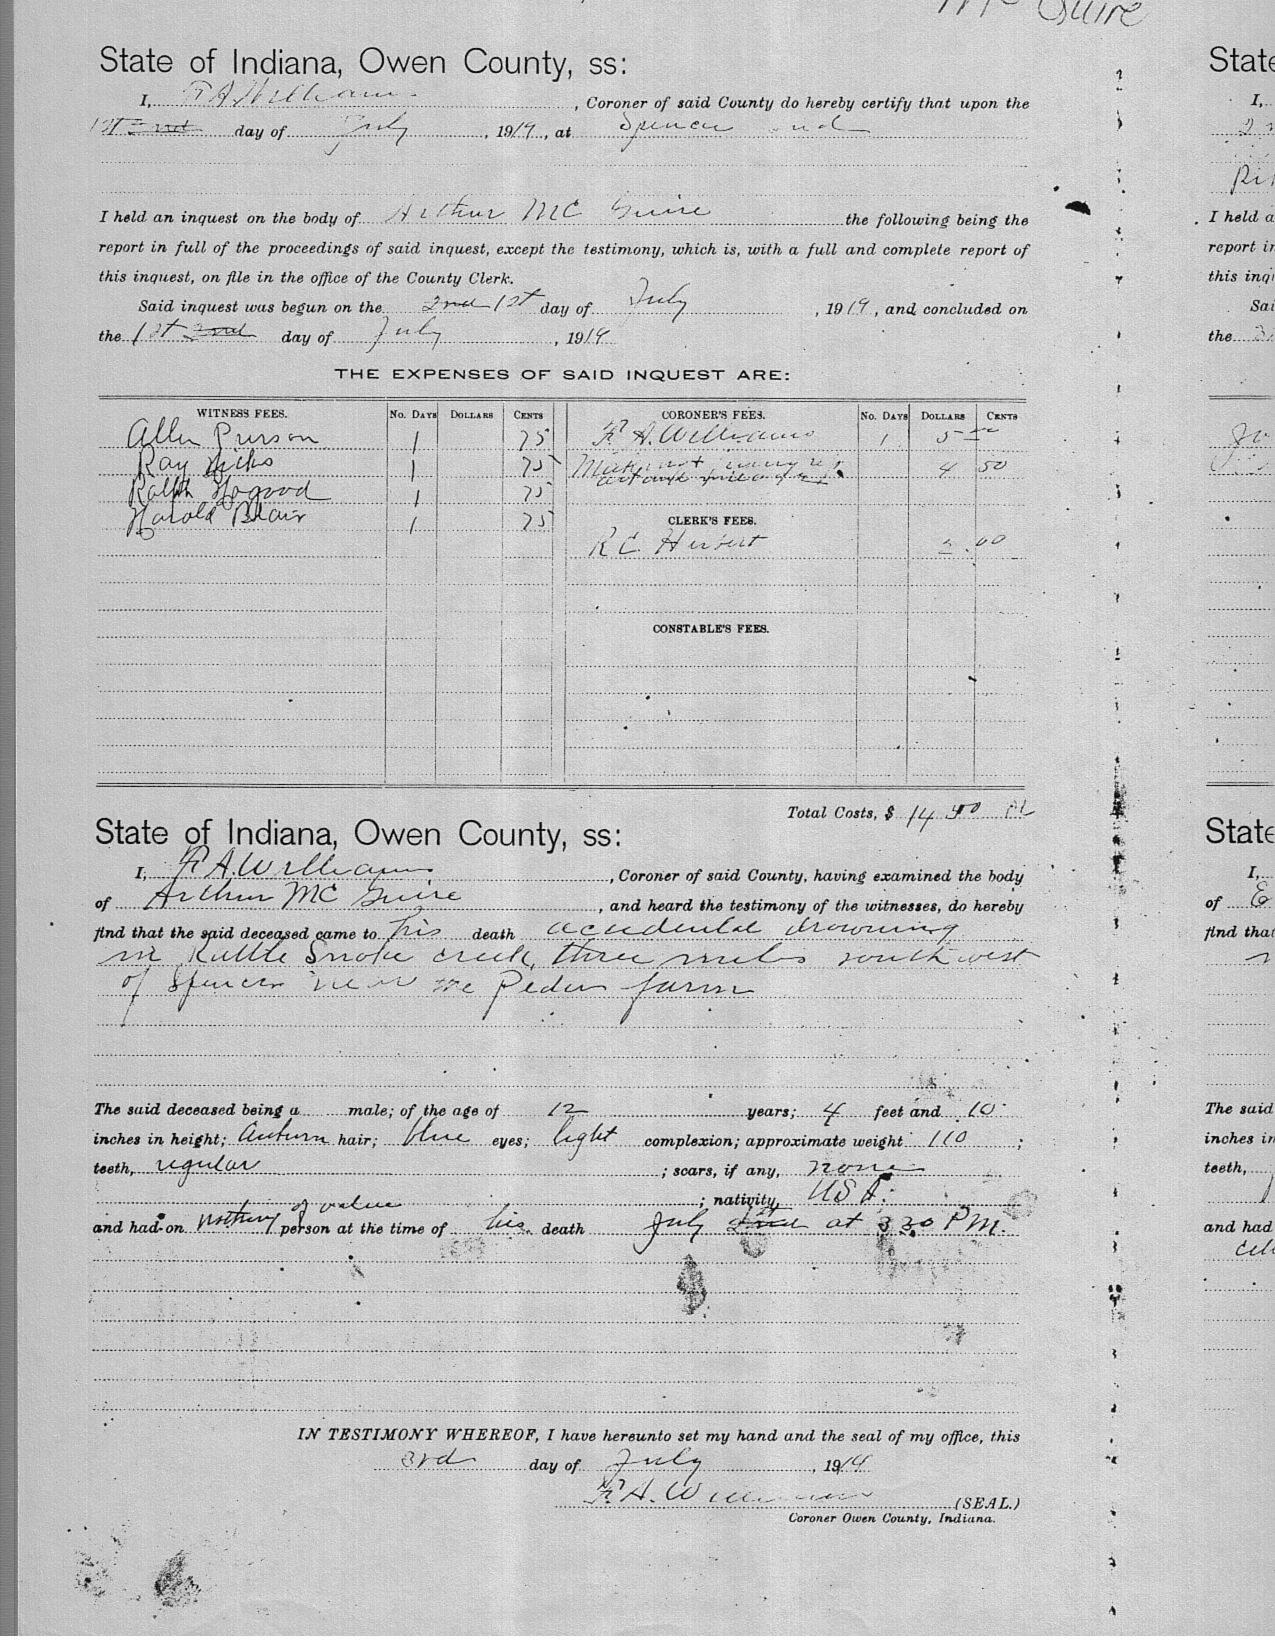 Mc Guire
State of Indiana, Owen County, ss:
I, F. A. Williams, Coroner of said County do hereby certify that upon the
1st 2nd day of July, 1919, at Spencer Ind
I held an inquest on the body of Arthur Mc Guire the following being the
report in full of the proceedings of said inquest, except the testimony, which is, with a full and complete report of
this inquest, on file in the office of the County Clerk.
Said inquest was begun on the 2nd 1st day of July, 1919, and concluded on
the 1st 2nd day of July, 1919
THE EXPENSES OF SAID INQUEST ARE:
WITNESS FEES. No. DAYS DOLLARS CENTS CORONER'S FEES. No. DAYS DOLLARS CENTS
Allen Pierson 1 75 F. A. Williams 1 5
Ray Hicks 1 75 4 50
Ralph Hogood 1 75
Harold Blair 1 75
CLERK'S FEES.
R C Herbert 00
CONSTABLE'S FEES.
Total Costs, $ 14
State of Indiana, Owen County, ss:
I, F. A. Williams, Coroner of said County, having examined the body
of Arthur Mc Guire, and heard the testimony of the witnesses, do hereby
find that the said deceased came to his death accidental drowning
in Rattle Snake creek, three miles south west
of Spencer near the Peden farm
The said deceased being a male; of the age of 12 years; 4 feet and 10
inches in height; Auburn hair; blue eyes; light complexion; approximate weight 110;
teeth, regular; scars, if any, none
; nativity, USA.
and had on nothing of value person at the time of his death July 2nd 1st at 3 30 P M.
IN TESTIMONY WHEREOF, I have hereunto set my hand and the seal of my office, this
3rd day of July, 1919
F. A. Williams (SEAL.)
Coroner Owen County, Indiana.
State
I,
I held a
report in
this inq
Sai
the 3
State
I,
of E
find that
The said
inches in
teeth,
and had